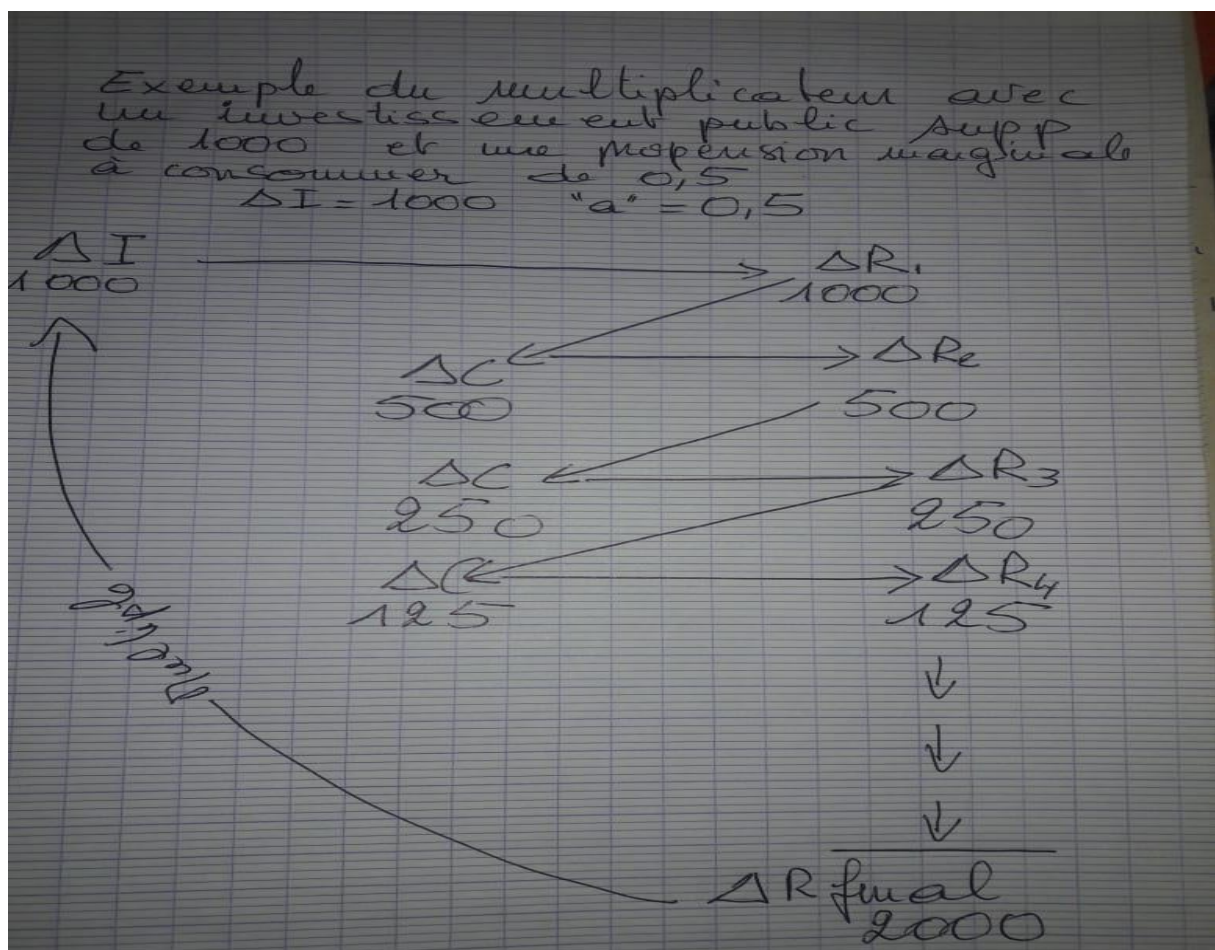 Exemple du multiplicateur avec
un investissement public supp
de 1000 et une propension marginale
à consommer de 0,5
ΔI = 1000 "a" = 0,5
ΔI ΔR1
1000 1000
ΔC ΔR2
500 500
ΔC ΔR3
250 250
ΔC ΔR4
125 125
ΔR final
2000